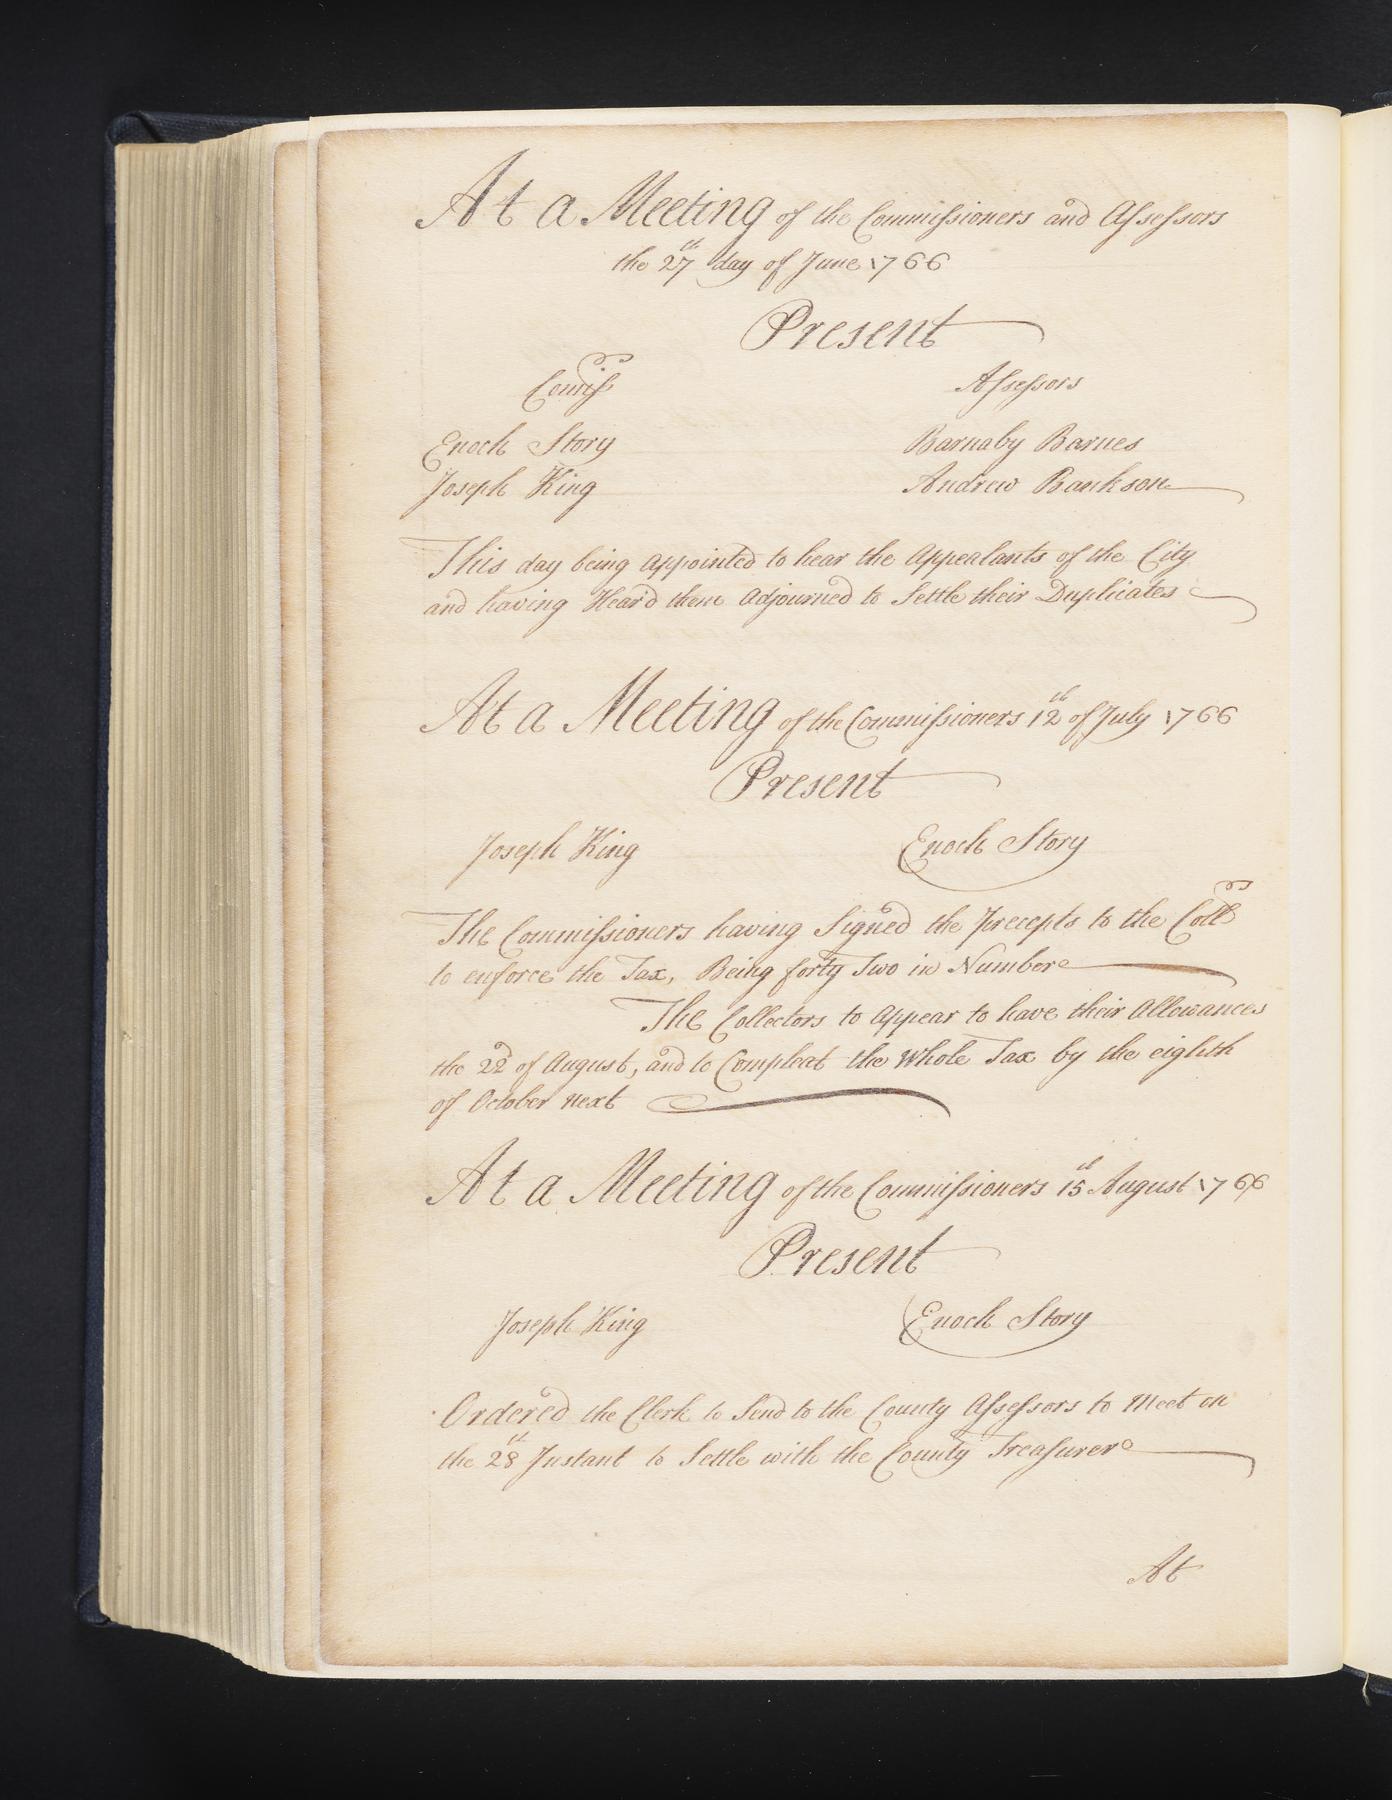 At a Meeting of the Commissioners and Assessors
the 27th day of June 1766
Present
Comissrs Assessors
Enoch Story Barnaby Barnes
Joseph King Andrew Bankson
This day being appointed to hear the Appealants of the City
and having Heard them Adjourned to Settle their Duplicates
At a Meeting of the Commissioners 12th of July 1766
Present
Joseph King Enoch Story
The Commissioners having Signed the Precepts to the Collrs
to enforce the Tax, Being forty Two in Number
The Collectors to Appear to have their Allowances
the 22d of August, and to Compleat the Whole Tax by the eighth
of October next
At a Meeting of the Commissioners 15th August 1766
Present
Joseph King Enoch Story
Ordered the Clerk to Send to the County Assessors to Meet on
the 28th Instant to Settle with the County Treasurer
At